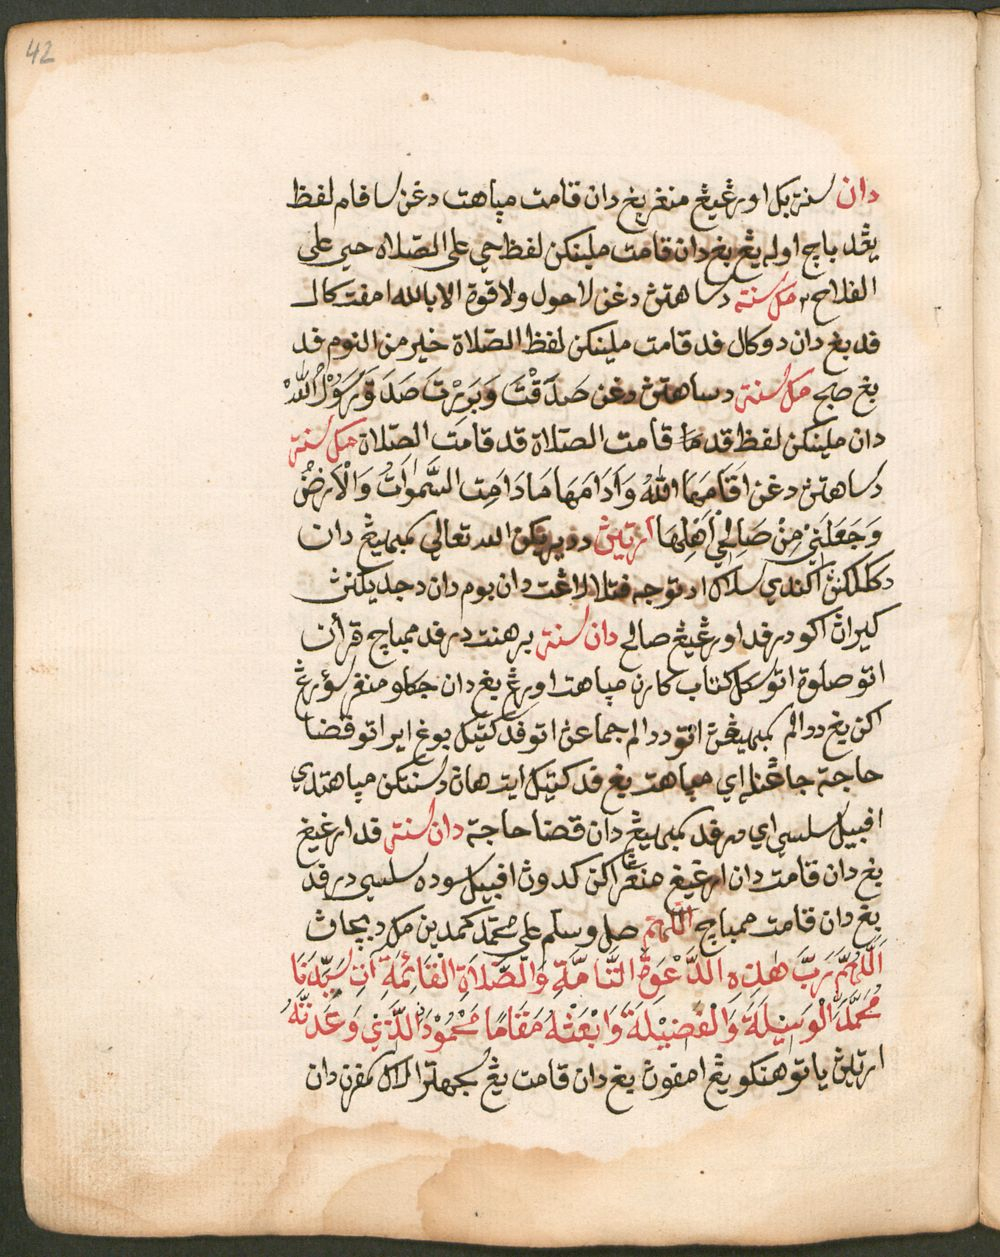 42
دان سنة بݢ اورڠ يڠ منڠر بڠ دان قامت مڽاهت دڠن سافام لفظ
يڠد باچ اوله يڠ بڠ دان قامت ملينكن لفظ حي على الصّلاه حي على
الفلاح مك سنة دساهتڽ دڠن لاحول ولاقوة الابالله امفت كال
فد بڠ دان دوكال فد قامت ملينكن لفظ الصّلاة خير من النوم فد
بڠ صبح مك سنة دساهتڽ دڠن صَدَقْتَ وَبَرِرْتَ صَدَقَ رَسُوْلُ اللهْ
دان ملينكن لفظ قد قامت الصّلاة قد قامت الصّلاة مك سنة
دساهتڽ دڠن اَقَامَهَا اللهُ وَأَدَامَهَا مَادَامَتِ السَّمٰوَاتُ وَالْاَرْضُ
وَجَعَلَنِيْ مِنْ صَالِحِيْ اَهْلِهَا ارتيڽ دديريكن الله تعالى كمبهيڠ دان
دككلكنڽ سلاڬ اد توجه فتلا لاڠت دان بوم دان دجديكنڽ
كيراڽ اكو درفد اورڠ يڠ صالح دان سنة برهنت درفد ممباچ قرأن
اتو صلوة اتو سݢل كتاب كارن مڽاهت اورڠ بڠ دان جكلو منڠر سؤرڠ
اكن بڠ ددالم كمبهيڠن اتو ددالم جماعن اتو فد كتيك بوڠ اير اتو قضا
حاجة جاڠنله اي مڽاهت بڠ فد كتيك ايت هاڽ دسنتكن مڽاهتدي
افبيل سلسي اي درفد كمبهيڠ دان قضا حاجة دان سنة فد اورڠ يڠ
بڠ دان قامت دان اورڠ يڠ منڠر اكن كدوڽ افبيل سوده سلسي درفد
بڠ دان قامت ممباچ اللهم صل وسلم على محمّد كمدين مك دبچاڽ
اَللّٰهُمَّ رَبَّ هٰذِهِ الدَّعْوَةِ التَّامَّةِ وَالصَّلَاةِ الْقَائِمَةِ اٰتِ سَيِّدَنَا
مُحَمَّدَ الْوَسِيْلَةَ وَالْفَضِيْلَةَ وَابْعَثْهُ مَقَامًا مَحْمُوْدَ الَّذِيْ وَعَدْتَّهُ
ارتيڽ ياتوهنكو يڠ امفوڽ بڠ دان قامت يڠ